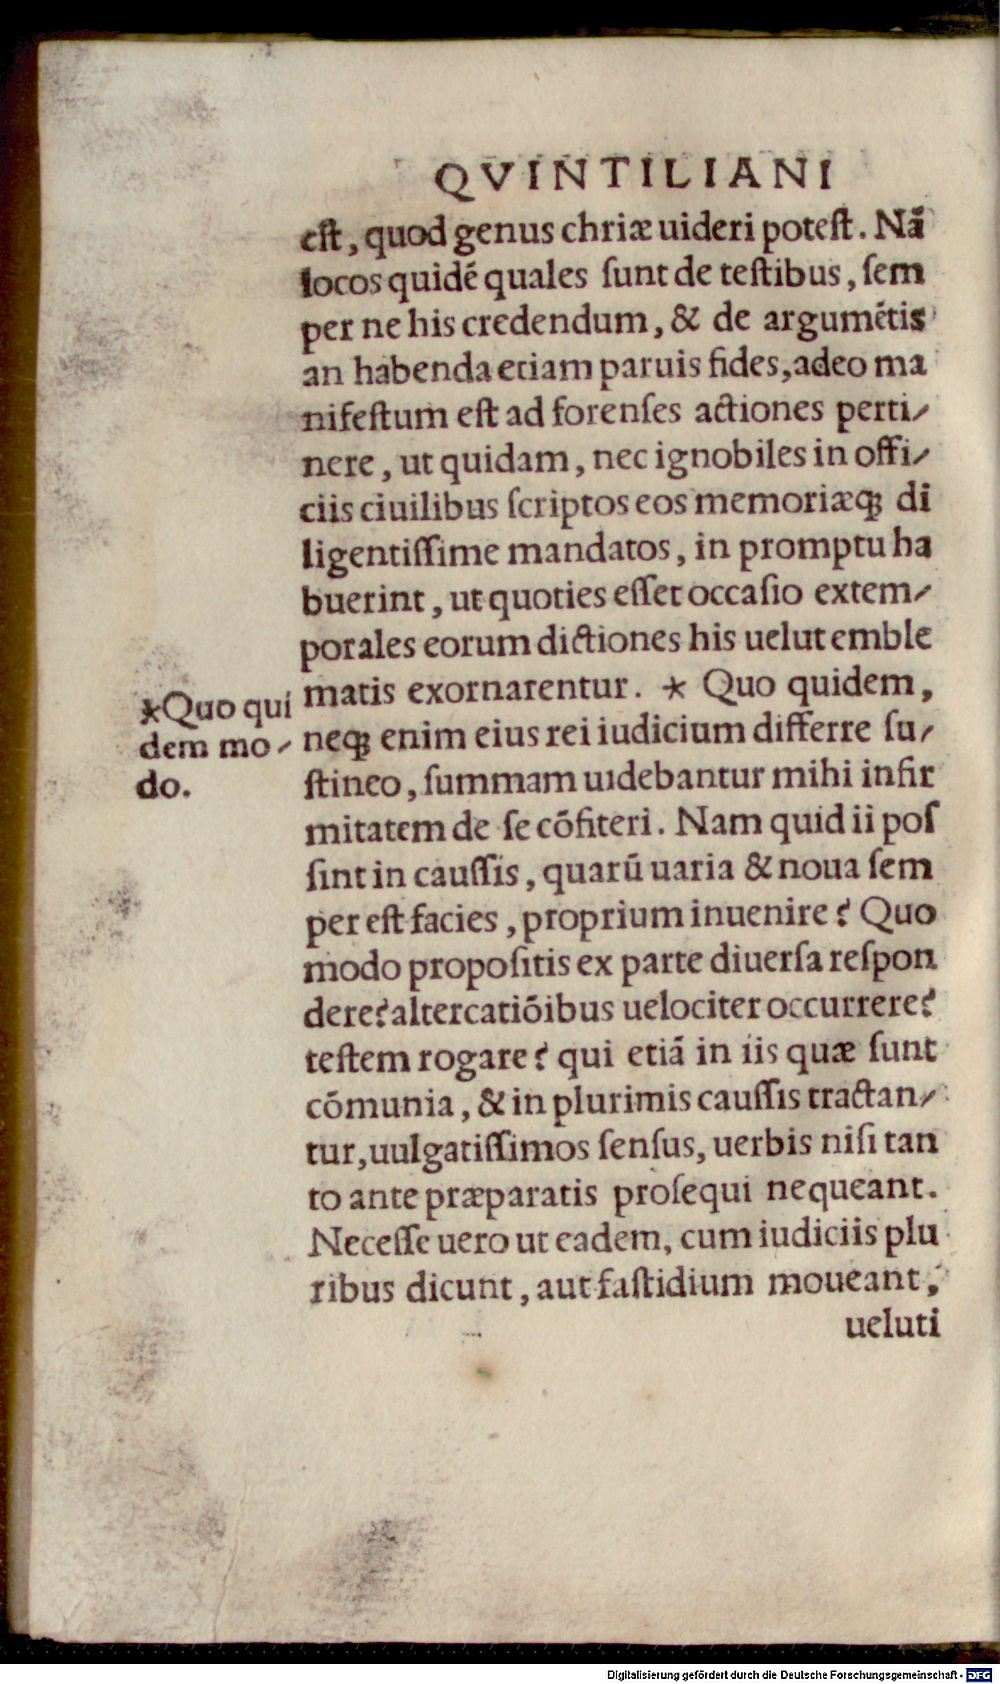 QVINTILIANI
eſt, quod genus chriæ uideri poteſt. Nã
locos quidẽ quales ſunt de teſtibus, ſem
per ne his credendum, & de argumẽtis
an habenda etiam paruis fides, adeo ma
nifeſtum eſt ad forenſes actiones perti⸗
nere, ut quidam, nec ignobiles in offi⸗
ciis ciuilibus ſcriptos eos memoriæq; di
ligentiſſime mandatos, in promptu ha
buerint, ut quoties eſſet occaſio extem⸗
porales eorum dictiones his uelut emble
matis exornarentur. * Quo quidem,
neq; enim eius rei iudicium differre ſu⸗
ſtineo, ſummam uidebantur mihi infir
mitatem de ſe cõfiteri. Nam quid ii poſ
ſint in cauſſis, quarũ uaria & noua ſem
per eſt facies, proprium inuenire? Quo
modo propoſitis ex parte diuerſa reſpon
dere? altercatiõibus uelociter occurrere?
teſtem rogare? qui etiã in iis quæ ſunt
cõmunia, & in plurimis cauſſis tractan⸗
tur, uulgatiſſimos ſenſus, uerbis niſi tan
to ante præparatis proſequi nequeant.
Neceſſe uero ut eadem, cum iudiciis plu
ribus dicunt, aut faſtidium moueant,
ueluti
*Quo qui
dem mo⸗
do.
Digitalisierung gefördert durch die Deutsche Forschungsgemeinschaft - DFG